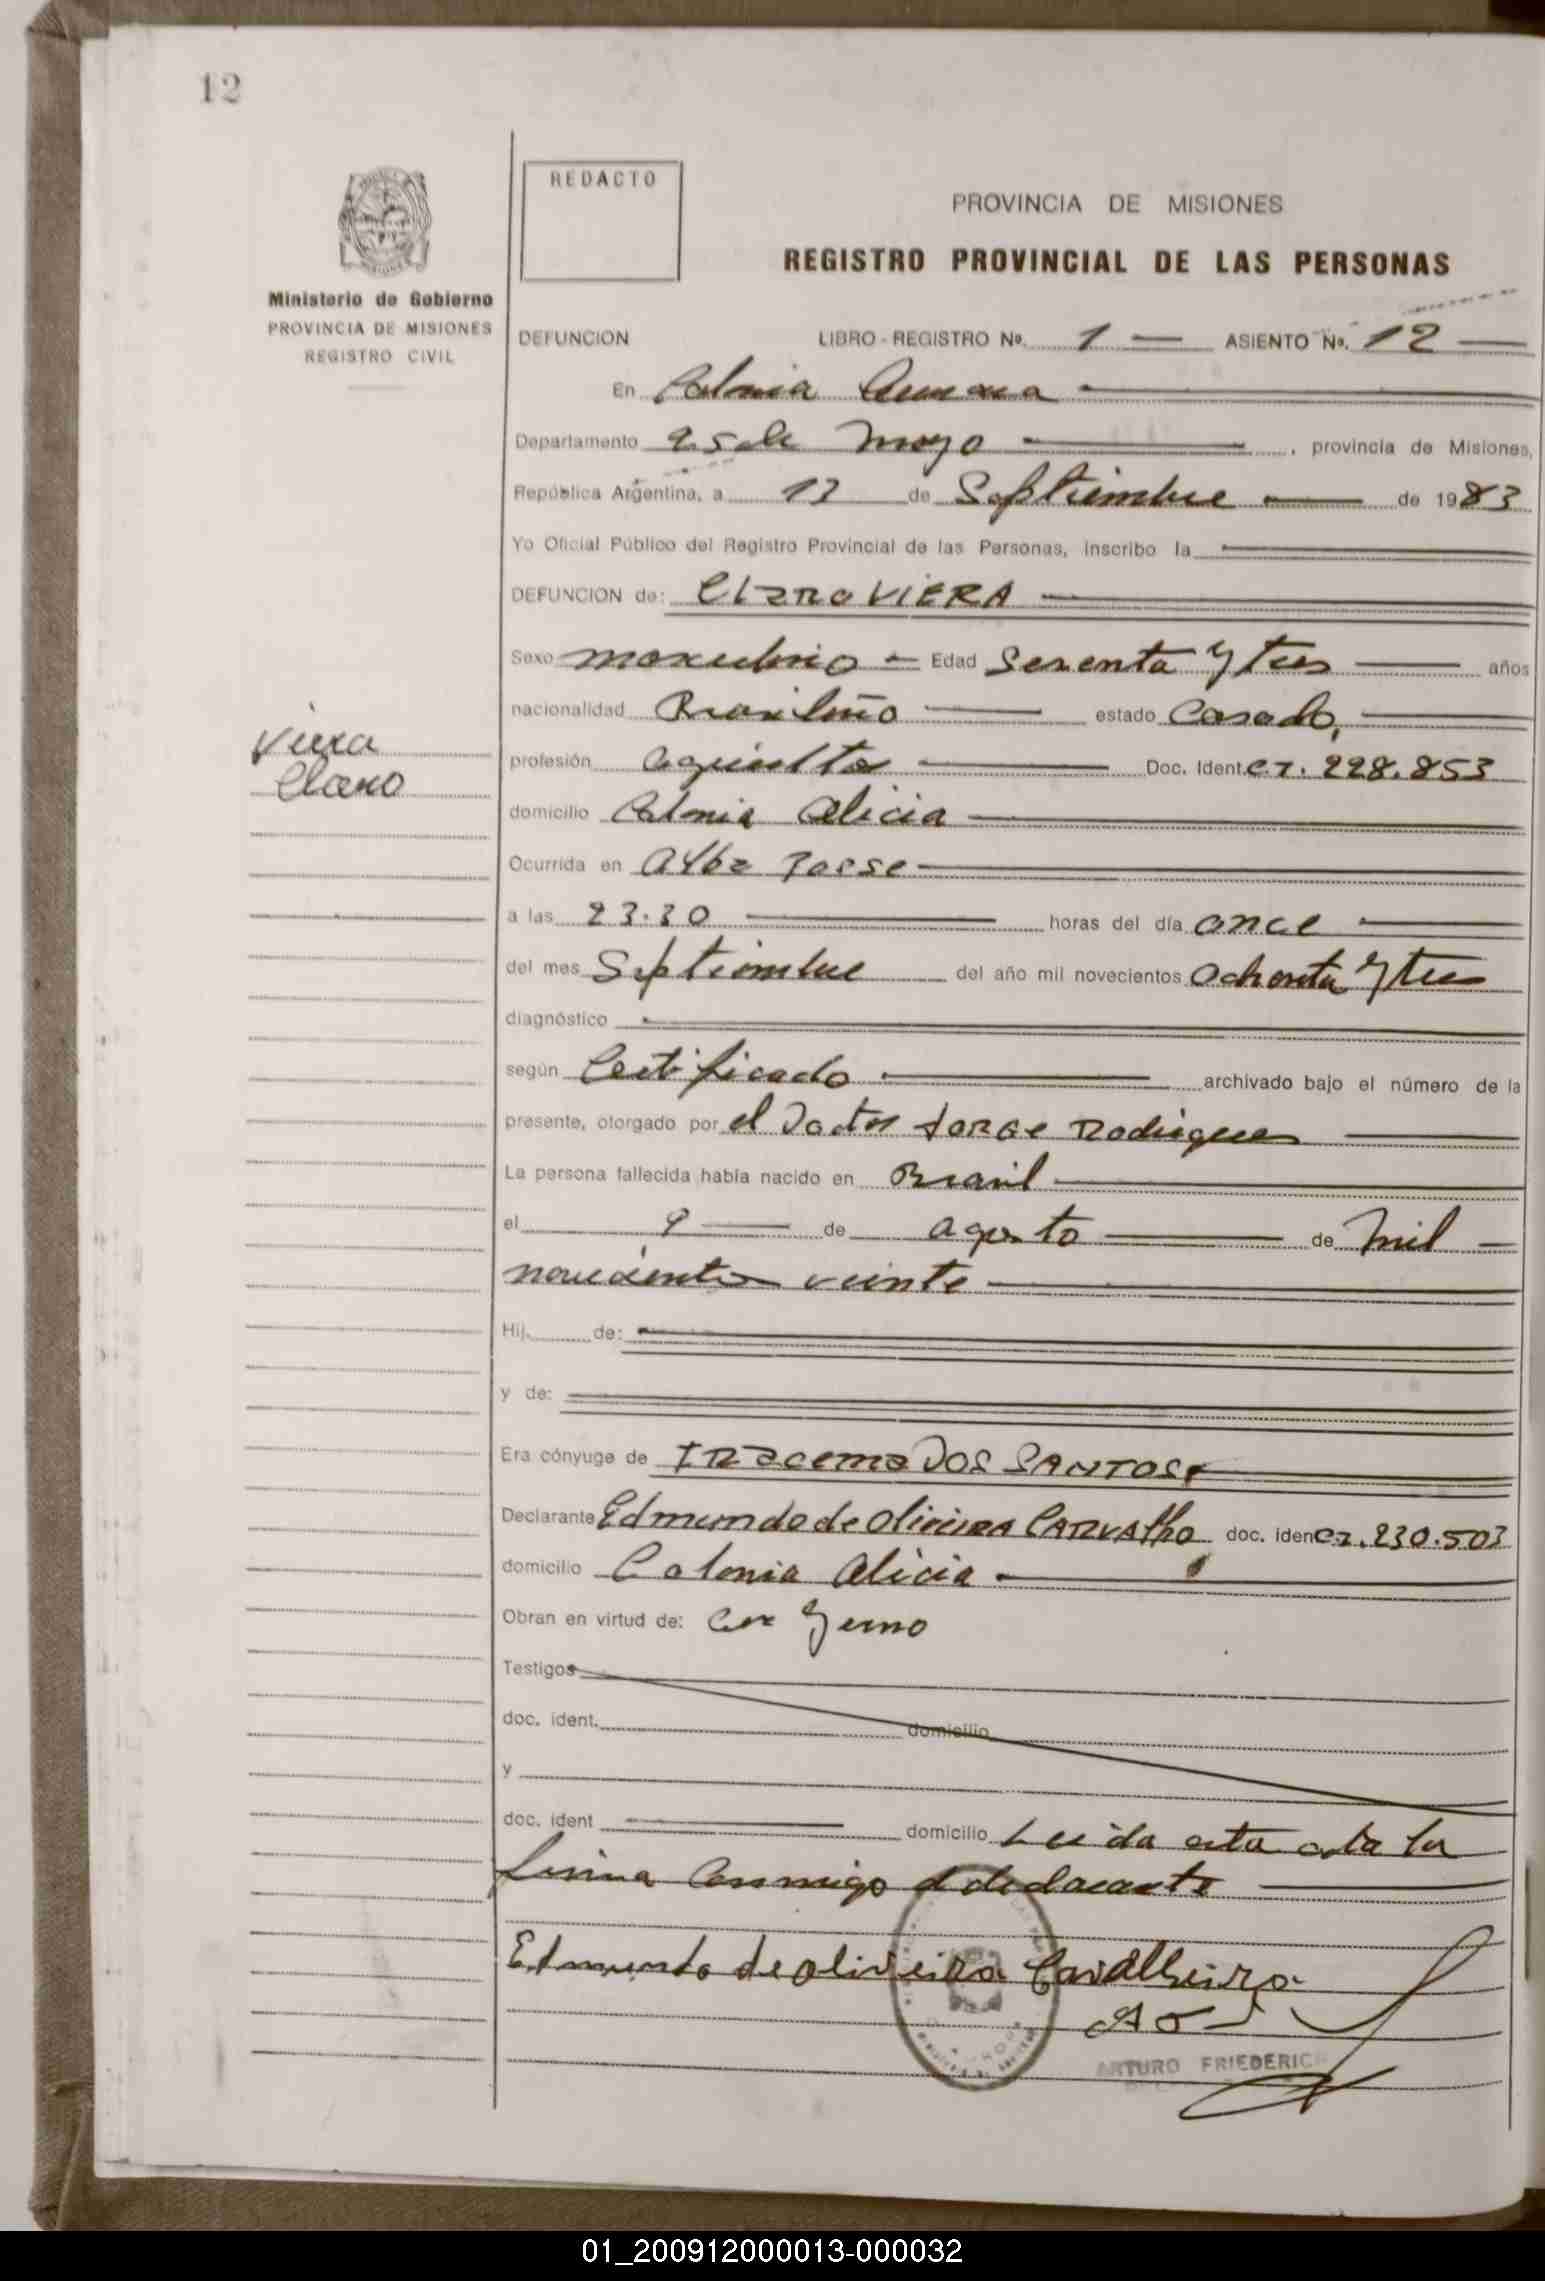 12
REDACTO
PROVINCIA DE MISIONES
REGISTRO PROVINCIAL DE LAS PERSONAS
Ministerio de Gobierno
PROVINCIA DE MISIONES
REGISTRO CIVIL
DEFUNCION LIBRO - REGISTRO Nº. 1 ASIENTO Nº. 12
En Colonia Aurora
Departamento 25 de Mayo, provincia de Misiones,
República Argentina, a 13 de Septiembre de 1983
Yo Oficial Público del Registro Provincial de las Personas, inscribo la
DEFUNCION de: Claro VIERA
Sexo masculino Edad Sesenta y tres años
nacionalidad Brasileño estado Casado,
Viera
Claro
profesión agricultor Doc. Ident. C.I. 228.853
domicilio Colonia Alicia
Ocurrida en Alba Posse
a las 23.30 horas del día once
del mes Septiembre del año mil novecientos Ochenta y tres
diagnóstico
según Certificado archivado bajo el número de la
presente, otorgado por el Doctor Jorge Rodrigues
La persona fallecida había nacido en Brasil
el 9 de agosto de mil
novecientos veinte
Hij de:
y de:
Era cónyuge de IRacema DOS SANTOS
Declarante Edmundo de Oliveira CARVAlho doc. iden C.I. 230.503
domicilio Colonia Alicia
Obran en virtud de: Yerno
Testigos
doc. ident. domicilio
y
doc. ident domicilio Leida esta acta la
firma conmigo el declarante
Edmundo de oliveira Cavalheiro
ARTURO FRIEDERICH
01_200912000013-000032